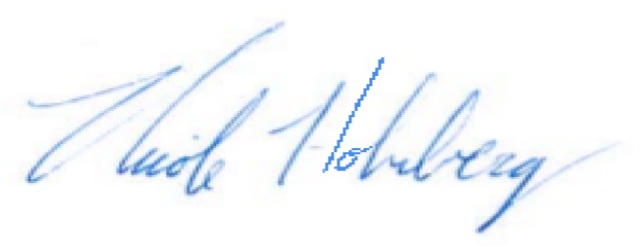 Nicole Hohnberg